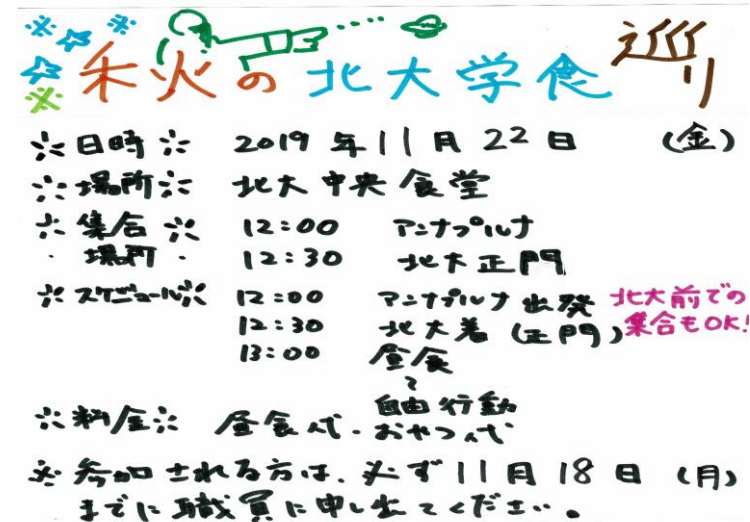 禾火の北大学食巡り
※日時※ 2019年11月22日 (金)
※場所※ 北大中央食堂
※集合※ 12:00 アンナプルナ
・場所・ 12:30 北大正門
※スケジュール※ 12:00 アンナプルナ出発 北大前での
12:30 北大着(正門) 集合もOK!
13:00 昼食
〜
自由行動
※料金※ 昼食代・おやつ代
※参加される方は、必ず11月18日(月)
までに職員に申し出てください。